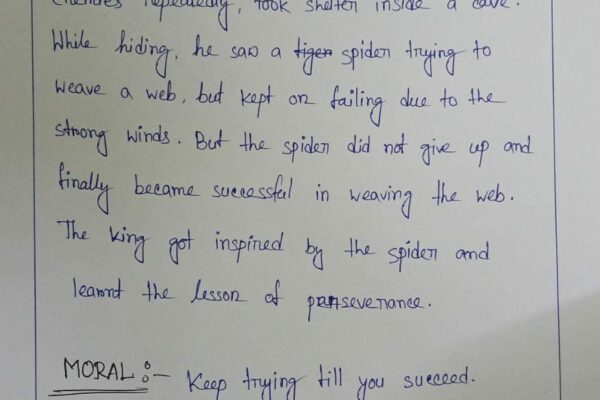 enemies repeatedly, took shelter inside a cave.
While hiding, he saw a tiger spider trying to
weave a web, but kept on failing due to the
strong winds. But the spider did not give up and
finally became successful in weaving the web.
The king got inspired by the spider and
learnt the lesson of perseverance.
MORAL :- Keep trying till you succeed.